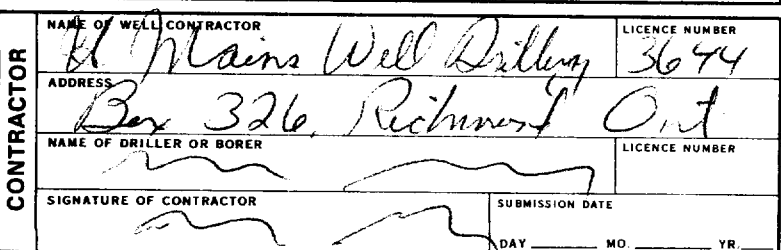 CONTRACTOR
NAME OF WELL CONTRACTOR LICENCE NUMBER
H Mains Well Drilling 3644
ADDRESS
Box 326, Richmond Ont
NAME OF DRILLER OR BORER LICENCE NUMBER
SIGNATURE OF CONTRACTOR SUBMISSION DATE
DAY MO. YR.